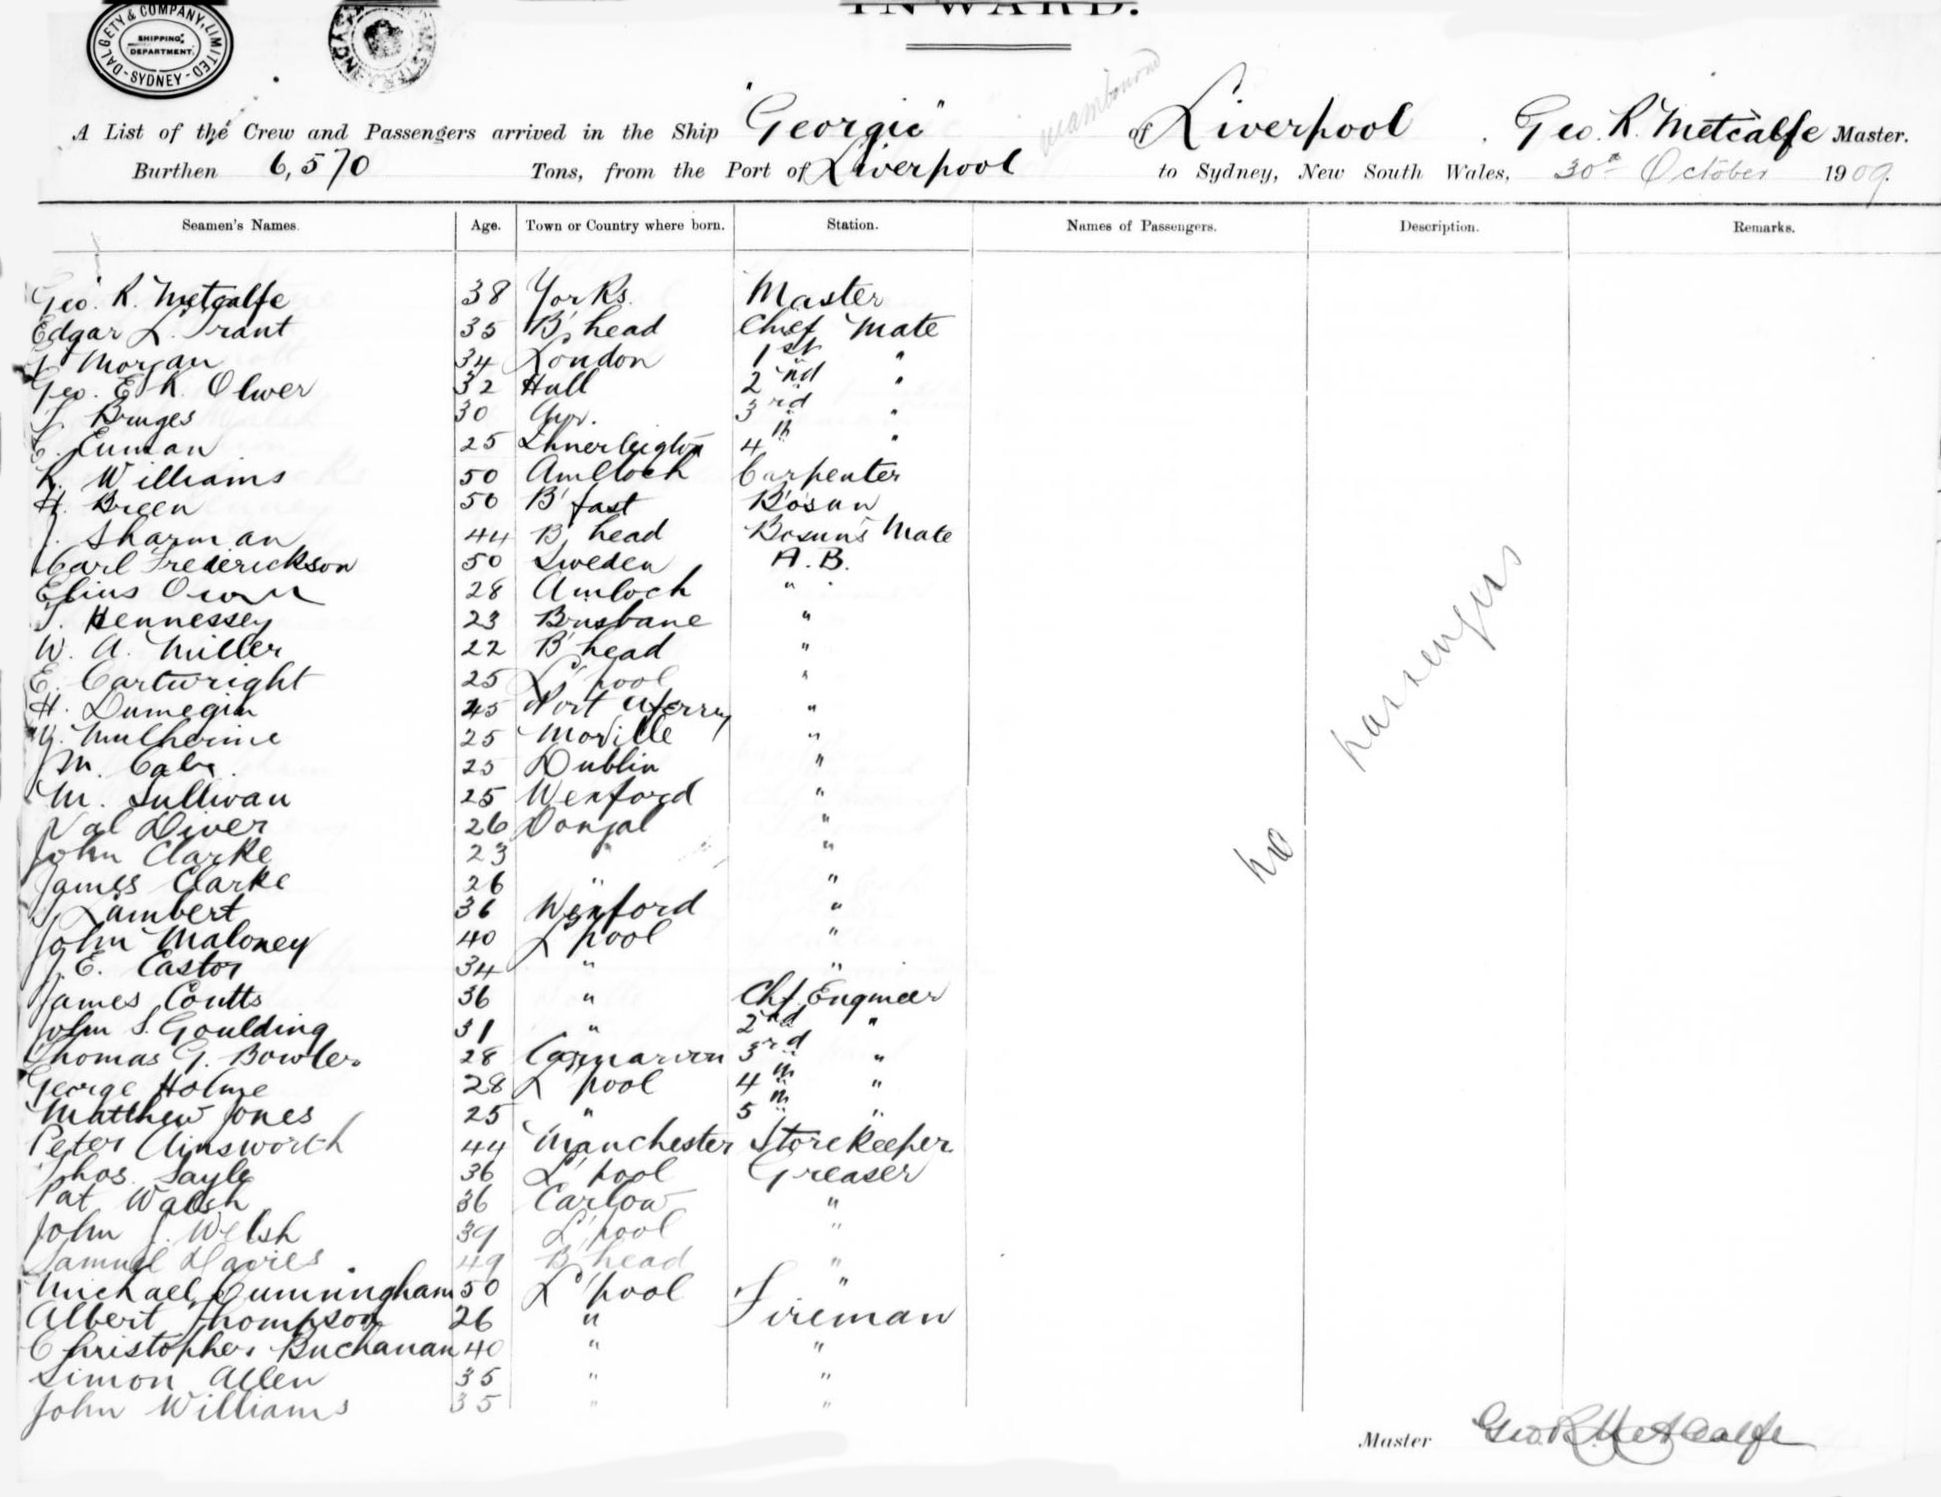 DALGETY & COMPANY, LIMITED
SHIPPING DEPARTMENT.
SYDNEY
INWARD.
A List of the Crew and Passengers arrived in the Ship "Georgic" of Liverpool . Geo. R. Metcalfe Master.
Burthen 6,570 Tons, from the Port of Liverpool to Sydney, New South Wales, 30th October 1909.
Seamen's Names. Age. Town or Country where born. Station. Names of Passengers. Description. Remarks.
Geo. R. Metcalfe 38 Yorks. Master
Edgar L. Trant 35 B'head Chief Mate
Morgan 34 London 1st "
Geo. E. R. Oliver 32 Hull 2nd "
Bruges 30 Ayr. 3rd "
25 4th "
R. Williams 50 Amlloch Carpenter
H. Breen 50 B'fast Bosun
Sharman 44 B'head Bosun's Mate
Carl Frederickson 50 Sweden A.B.
Elius Owen 28 Amloch "
T. Hennessey 23 Brisbane "
W. A. Miller 22 B'head "
E. Cartwright 25 L'pool "
H. Dumegin 45 Port "
25 Moville "
M. 25 Dublin "
M. Sullivan 25 Wexford "
Val Diver 26 Dongal "
John Clarke 23 " "
James Clarke 26 " "
Lambert 36 Wexford "
John Maloney 40 L'pool "
J. E. Castor 34 " "
James Coutts 36 " Chf. Engineer
John S. Goulding 31 " 2nd "
Thomas G. Bowler 28 Carnarvon 3rd "
George Holme 28 L'pool 4th "
Matthew Jones 25 " 5th "
Peter Ainsworth 44 Manchester Storekeeper
Thos. Sayle 36 L'pool Greaser
Pat Walsh 36 Carlow "
John J. Welsh 39 L'pool "
Samuel Davies 49 B'head "
Michael Cunningham 50 L'pool "
Albert Thompson 26 " Fireman
Christopher Buchanan 40 " "
Simon Allen 35 " "
John Williams 35 " "
no passengers
Master Geo. R. Metcalfe